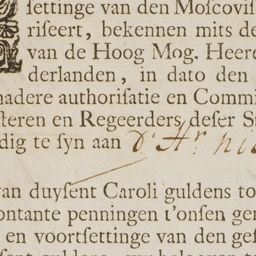 ſettinge van den Moſcoviſ
riſeert, bekennen mits de
van de Hoog Mog. Heere
derlanden, in dato den
nadere authoriſatie en Commi
ſteren en Regeerders deſer S
dig te ſyn aan d'Hr. nic
van duyſent Caroli guldens to
ontante penningen t'onſen ger
en voortſettinge van den geſ